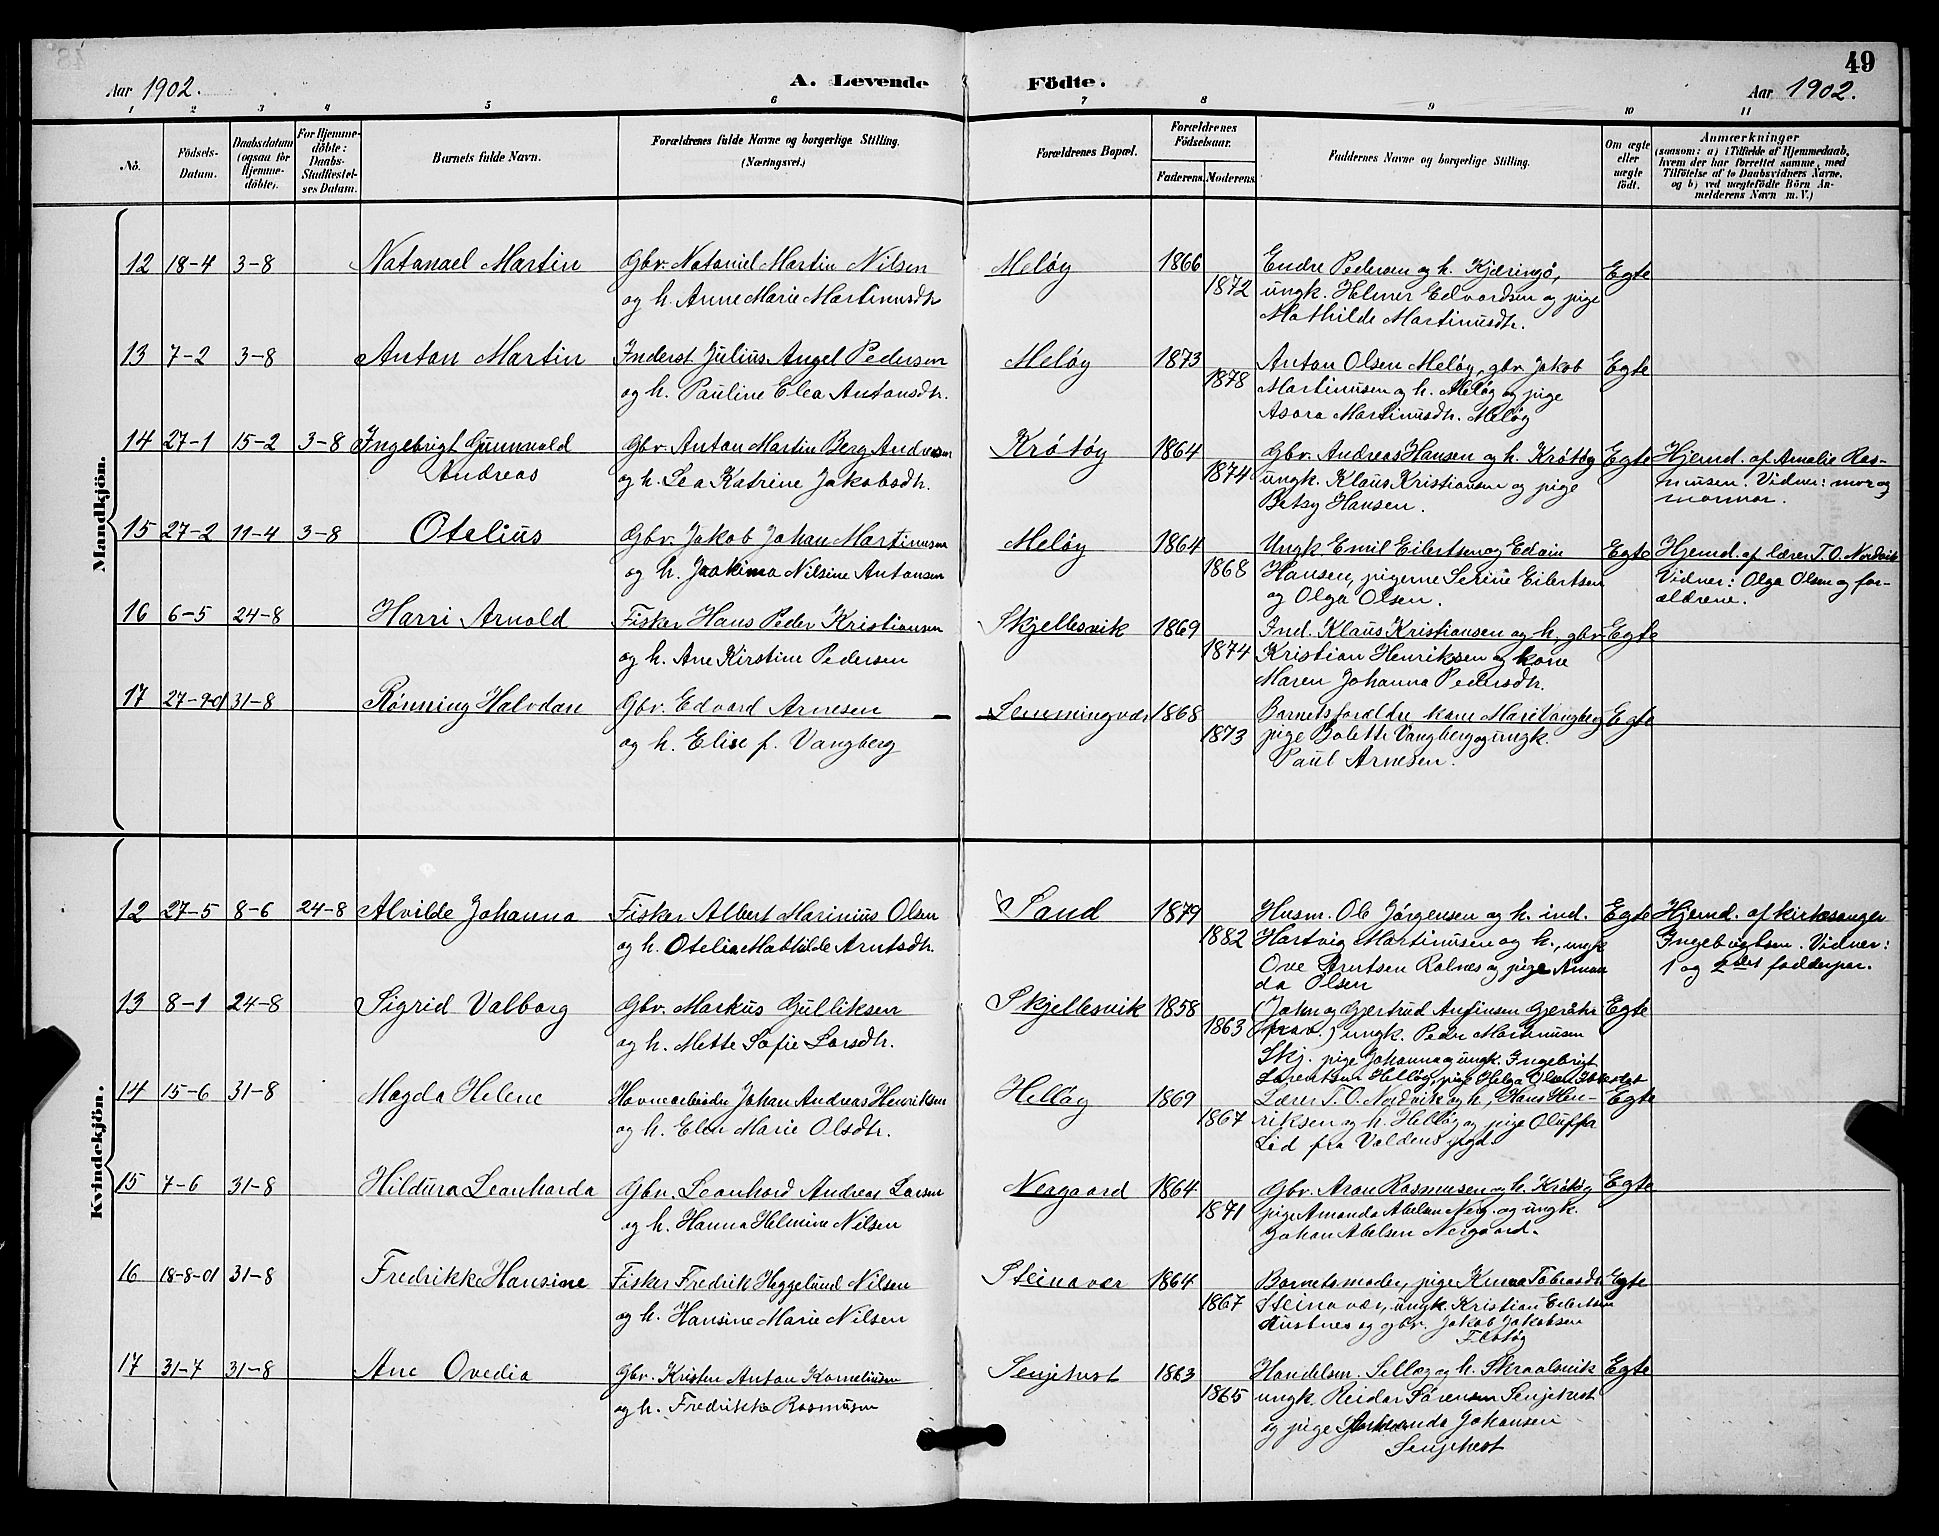 49
Aar 1902. A. Levende Födte. Aar 1902.
1 2 3 4 5 6 7 8 9 10 11
No.
Födsels-
Datum.
Daabsdatum
(ogsaa for
Hjemme-
döbte).
For Hjemme-
döbte:
Daabs-
Stadfæstel-
ses Datum.
Barnets fulde Navn.
Forældrenes fulde Navne og borgerlige Stilling.
(Næringsvei.)
Forældrenes Bopæl.
Forældrenes
Födselsaar.
Faderens. Moderens.
Faddernes Navne og borgerlige Stilling.
Om ægte
eller
uægte
födt.
Anmærkninger
(saasom: a) i Tilfælde af Hjemmedaab,
hvem der har forrettet samme, med
Tilföielse af to Daabsvidners Navne,
og b) ved uægtefödte Börn An-
melderens Navn m. V.)
Mandkjön.
12 18-4 3-8 Natanael Martin Gbr. Nataniel Martin Nilsen Meløy 1866 Endre Pedersen og h. Kjæringø, Egte
og h. Anne Marie Martinusdtr 1872 ungk. Helmer Edvardsen og pige
Mathilde Martinusdtr.
13 7-2 3-8 Anton Martin Inderst Julius Angel Pedersen Meløy 1873 Anton Olsen Meløy, gbr. Jakob Egte
og h. Pauline Elea Antonsdtr. 1878 Martinusen og h. Meløy og pige
Asora Martinusdtr. Meløy
14 27-1 15-2 3-8 Ingebrigt Gunnvald Gbr. Anton Martin Berg Andresen Krötöy 1864 Gbr. Andreas Hansen og h. Krötöy Egte Hjemd. af Amalie Ras-
Andreas og h. Lea Katrine Jakobsdtr. 1874 ungk. Klaus Kristiansen og pige musen. Vidner: mor og
Betsy Hansen. mormor.
15 27-2 11-4 3-8 Otelius Gbr. Jakob Johan Martinusen Meløy 1864 Ungk Emil Eilertsen og Edvin Egte Hjemd. af lærer T. O. Nordvik
og h. Joakima Nilsine Antonsen 1868 Hansen, pigerne Serine Eilertsen Vidner: Olga Olsen og for-
og Olga Olsen. ældrene.
16 6-5 24-8 Harri Arnold Fisker Hans Peder Kristiansen Skjellesvik 1869 Ind. Klaus Kristiansen og h., gbr. Egte
og h. Ane Kirstine Pedersen 1874 Kristian Henriksen og kone
Maren Johanna Pedersdtr.
17 27-9-01 31-8 Rønning Halvdan Gbr. Edvard Arnesen Lemmingvær 1868 Barnets forældre kone Mari Vangberg Egte
og h. Elise f. Vangberg 1873 pige Bolette Vangberg og ungk.
Paul Arnesen.
Kvindekjön.
12 27-5 8-6 24-8 Alvilde Johanna Fisker Albert Marinius Olsen Sand 1879 Husm. Ole Jørgensen og h. ind. Egte Hjemd. af kirkesanger
og h. Otelia Mathilde Arntsdtr. 1882 Hartvig Martinusen og h., ungk Ingebrigtsen. Vidner:
Ove Arntsen Rolnes og pige Aman 1 og 2det fadderpar.
da Olsen
13 8-1 24-8 Sigrid Valborg Gbr. Markus Gulliksen Skjellesvik 1858 (John og Gjertrud Anfinsen Egte
og h. Mette Sofie Larsdtr. 1863 ungk. Peder Martinusen
Skj. pige Johanna og ungk. Ingebrigt
Lorentsen Helløy, pige Helga Olsen
14 15-6 31-8 Magda Helene Havnearbeider Johan Andreas Henriksen Helløy 1869 Lærer T. O. Nordvik og h, Hans Hen- Egte
og h. Elen Marie Olsdtr. 1867 riksen og h. Helløy og pige Oluffa
Lid fra Voldens pgd.
15 7-6 31-8 Hildura Leonharda Gbr. Leonhard Andreas Larsen Nergaard 1864 Gbr. Aron Rasmusen og h. Krötöy Egte
og h. Hanna Helmine Nilsen 1871 pige Amanda Abelsen Nerg. og ungk.
Johan Abelsen Nergaard.
16 18-8-01 31-8 Fredrikke Hansine Fisker Fredrik Heggelund Nilsen Steinavær 1864 Barnets moder, pige Tobiasdtr Egte
og h. Hansine Marie Nilsen 1867 Steinavær, ungk. Kristian Eilertsen
og gbr. Jakob Jakobsen
Flatøy
17 31-7 31-8 Ane Ovedia Gbr. Kristen Anton Korneliusen Senjehest 1863 Handelsm. Selløg og h. Skraalsvik Egte
og h. Fredrikke Rasmusen 1865 ungk. Reidar Sørensen Senjehest
og pige Johansen
Senjehest